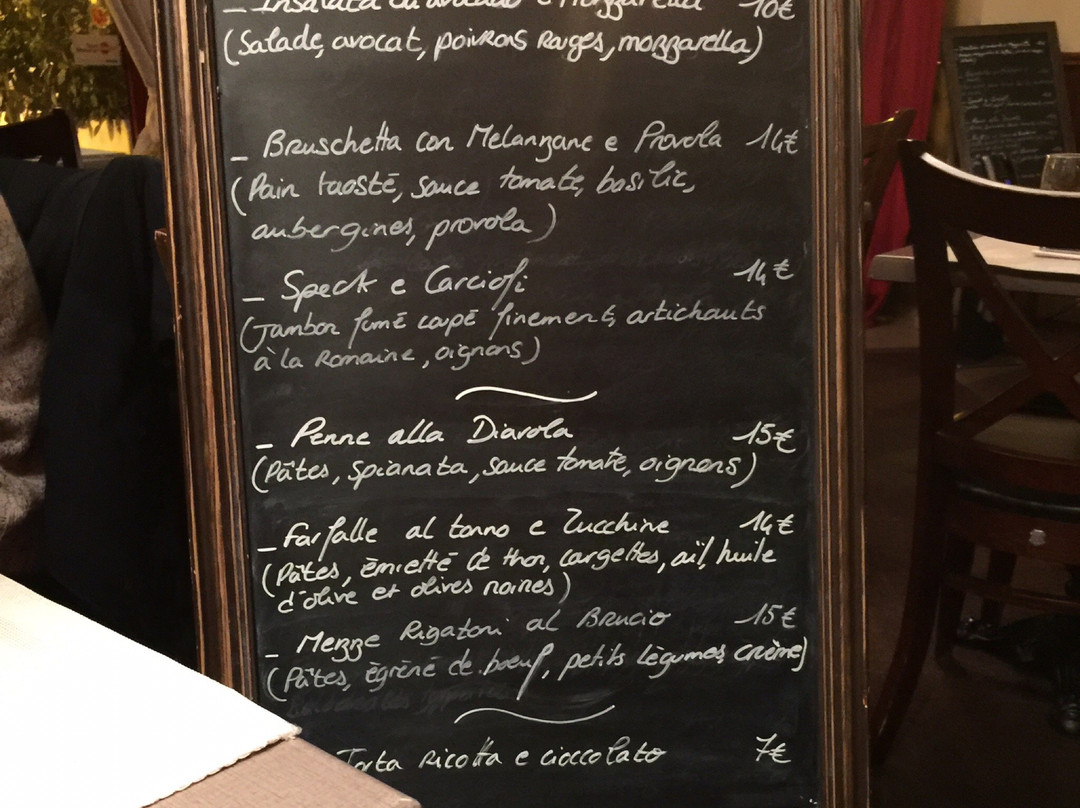 _ Insalata con avocado e mozzarella 10€
(Salade, avocat, poivrons rouges, mozzarella)
_ Bruschetta con Melanzane e Provola 14€
(Pain taosté, sauce tomate, basilic,
aubergines, provola)
_ Speck e Carciofi 14€
(Jambon fumé coupé finement, artichauts
à la Romaine, oignons)
_ Penne alla Diavola 15€
(Pâtes, spianata, sauce tomate, oignons)
_ Farfalle al tonno e Zucchine 14€
(Pâtes, émietté de thon, courgettes, ail, huile
d'olive et olives noires)
_ Mezze Rigatoni al Brucio 15€
(Pâtes, égréné de boeuf, petits légumes, crème)
Torta Ricotta e cioccolato 7€